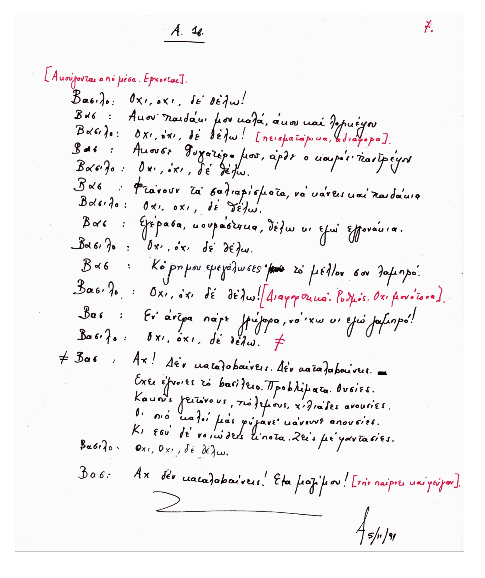 Α. 1α. 7.
[Ακούγονται από μέσα. Έρχονται].
Βασιλο: Όχι, όχι, δε θέλω!
Βας : Άκου παιδάκι μου καλά, άκου και λογικέψου
Βασιλο: Όχι, όχι, δε θέλω! [πεισματάρικα, αδιάφορα].
Βας : Άκουσε θυγατέρα μου, ήρθε ο καιρός παντρέψου
Βασιλο: Όχι, όχι, δε θέλω.
Βας : Φτάνουν τα σαλιαρίσματα, να κάνεις και παιδάκια
Βασιλο: Όχι, όχι, δε θέλω.
Βας : Εγέρασα, κουράστηκα, θέλω κι εγώ εγγονάκια.
Βασιλο: Όχι, όχι δε θέλω.
Βας : Κόρη μου εμεγάλωσες το μέλλον σου λαμπρό.
Βασιλο: Όχι, όχι δε θέλω! [Διαφορετικά. Ρυθμός. Όχι μονότονα].
Βας : Εν' άντρα πάρε γρήγορα, να 'χω κι εγώ γαμπρό!
Βασιλο: Όχι, όχι, δε θέλω. ≠
≠ Βας : Αχ! Δεν καταλαβαίνεις. Δεν καταλαβαίνεις.
Έχει έγνοιες το βασίλειο. Προβλήματα. Θυσίες.
Κακούς γειτόνους, πολέμους, χιλιάδες ανουσίες.
Οι πιό καλοί μας φύγανε κάνουνε απουσίες.
Κι εσύ δε νοιώθεις τίποτα. Ζεις με φαντασίες.
Βασιλο: Όχι, Όχι, δε θέλω.
Βας: Αχ δεν καταλαβαίνεις! Έλα μαζί μου! [την παίρνει και φεύγουν].
5/11/91